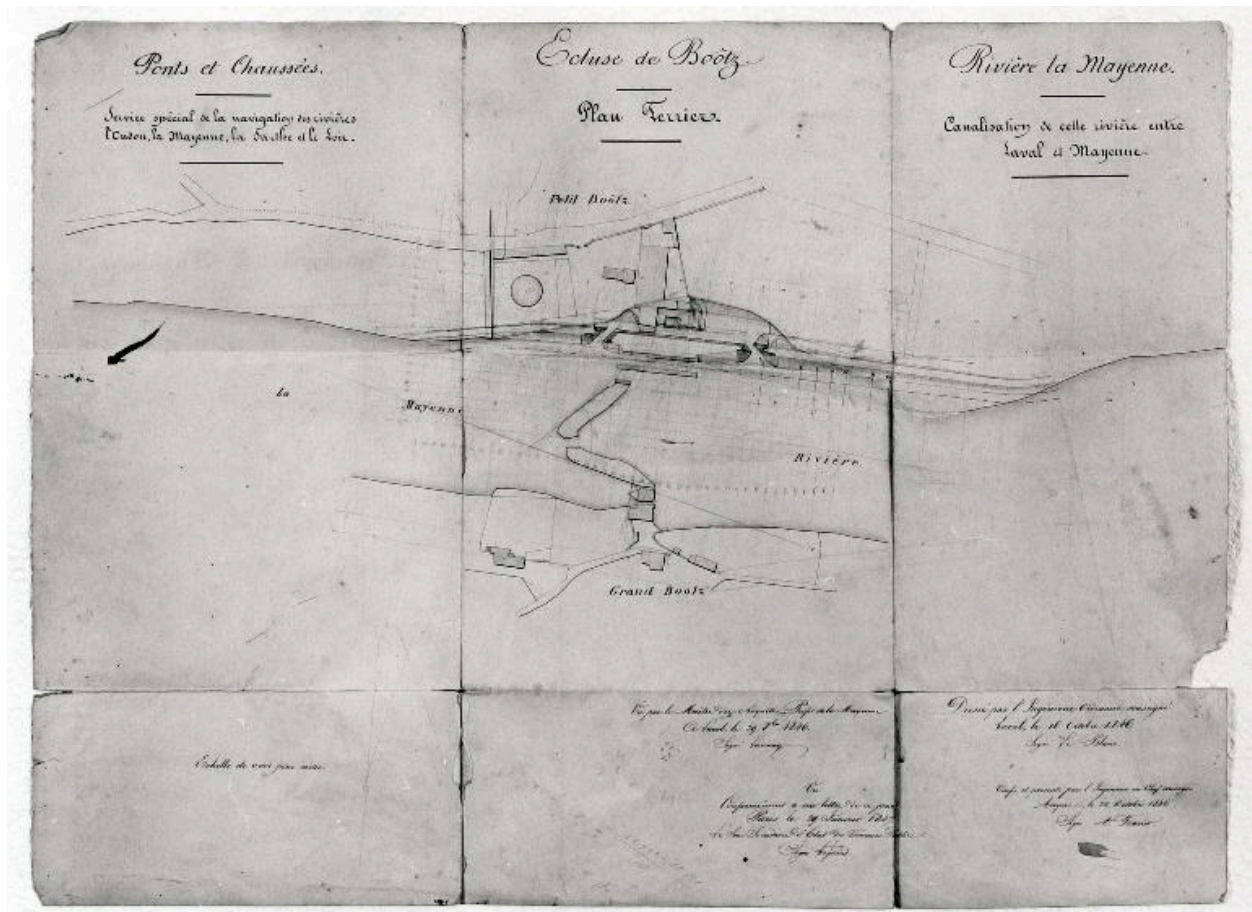 Ponts et Chaussées.
Service spécial de la navigation des rivières
l'Oudon, la Mayenne, la Sarthe et le Loir.
Ecluse de Boôtz.
Plan Terrier.
Rivière la Mayenne.
Canalisation de cette rivière entre
Laval et Mayenne.
Petit Boôtz
La
Mayenne
Rivière
Grand Boôtz
Echelle de 0.001 pour mètre.
Vu par le Maître des Requêtes, Préfet de la Mayenne
Laval, le 29 1846.
Signé
Vu
Conformément à ma lettre de ce jour
Paris le 29 Janvier
Le Sous Secrétaire d'Etat des Travaux
Signé Legrand.
Dressé par l'Ingénieur Ordinaire soussigné
Laval, le 16 Octobre 1846
Signé
Vérifié et présenté par l'Ingénieur en Chef soussigné
le 22 Octobre 1846
Signé